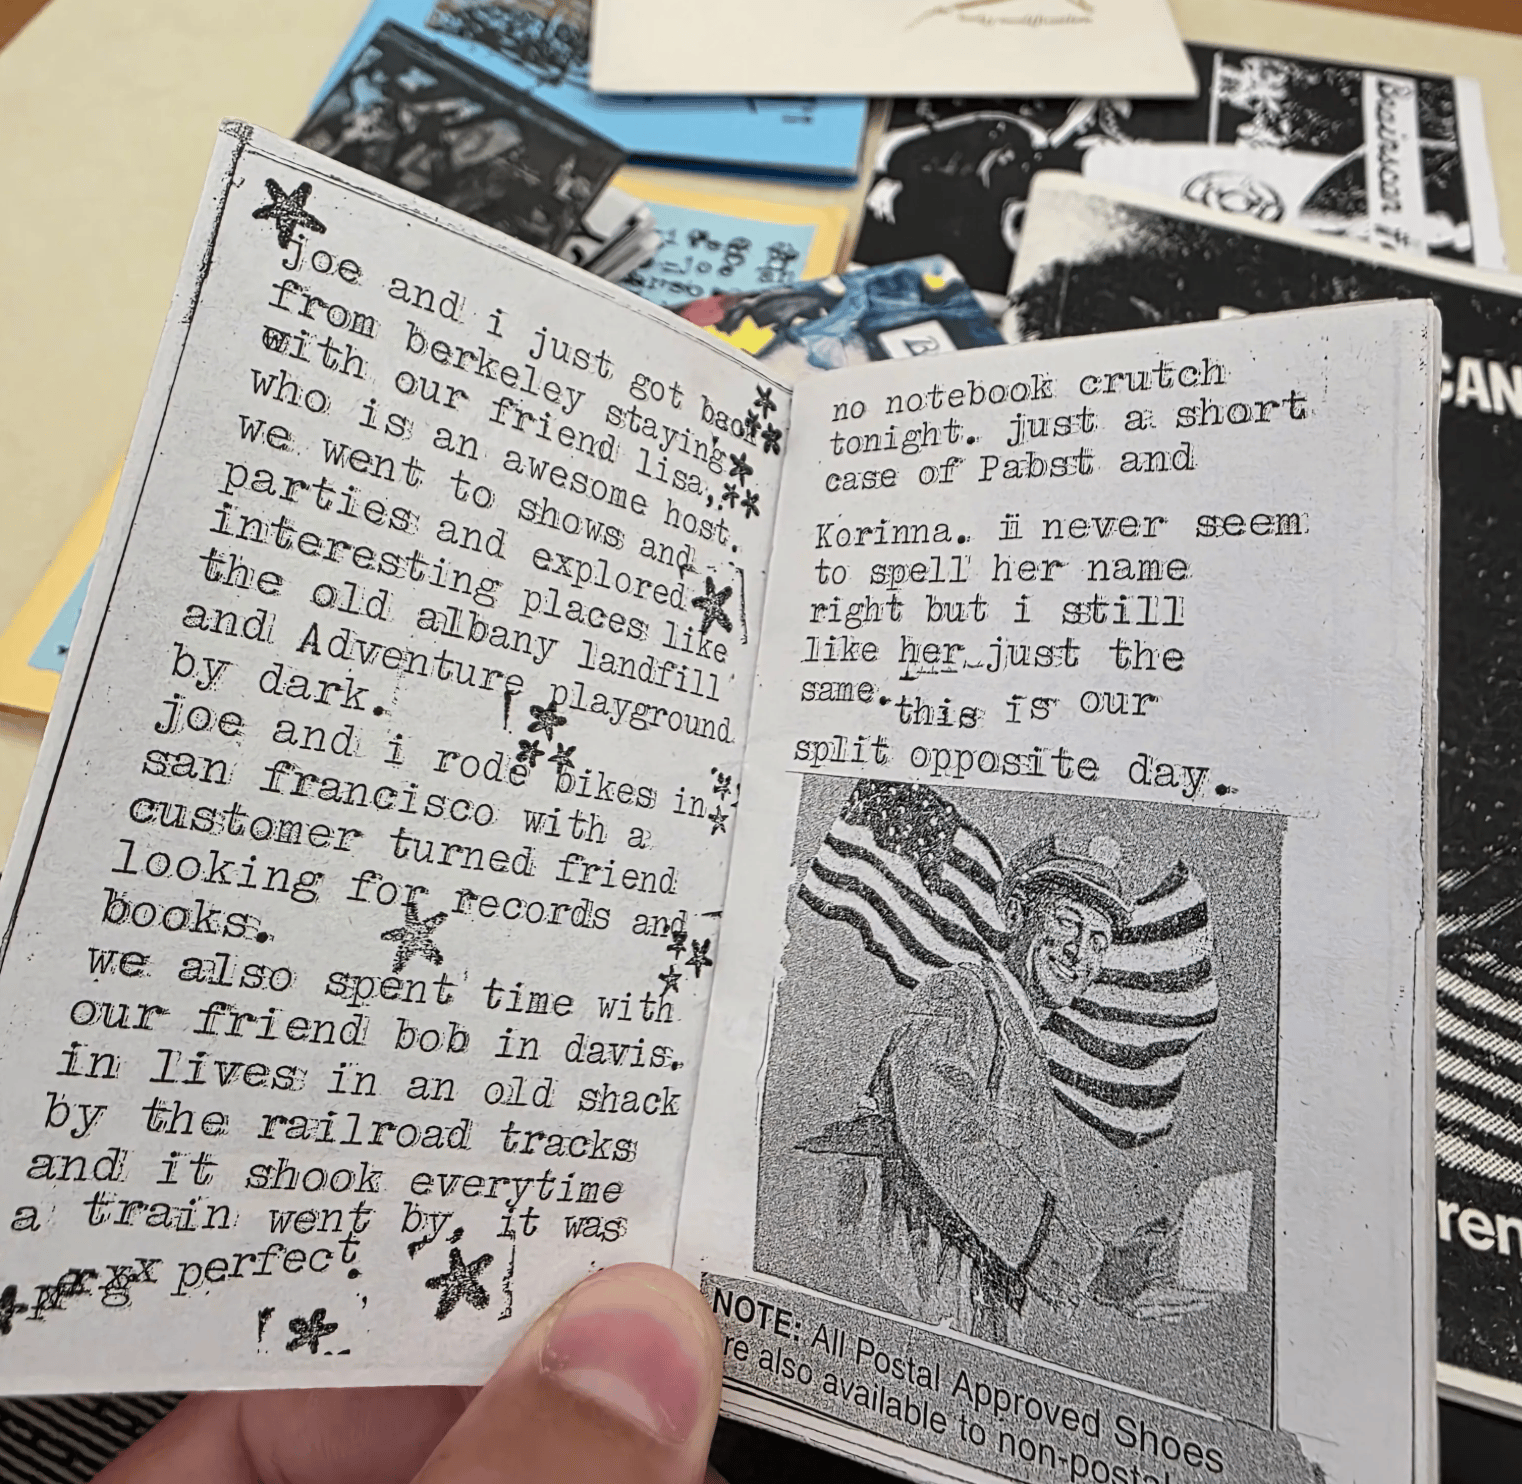 joe and i just got back
from berkeley staying
with our friend lisa,
who is an awesome host.
we went to shows and
parties and explored
interesting places like
the old albany landfill
and Adventure playground
by dark.
joe and i rode bikes in
san francisco with a
customer turned friend
looking for records and
books.
we also spent time with
our friend bob in davis.
in lives in an old shack
by the railroad tracks
and it shook everytime
a train went by, it was
perfect.
no notebook crutch
tonight. just a short
case of Pabst and
Korinna. ii never seem
to spell her name
right but i still
like her just the
same. this is our
split opposite day.
NOTE: All Postal Approved Shoes
re also available to non-postal
Brainscan
CAN
ren